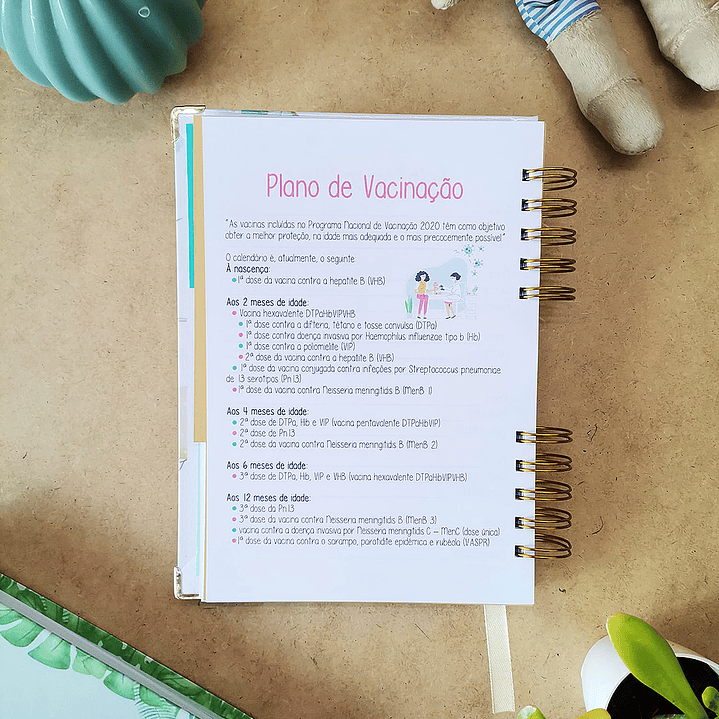 Plano de Vacinação
"As vacinas incluídas no Programa Nacional de Vacinação 2020 têm como objetivo
obter a melhor proteção, na idade mais adequada e o mais precocemente possível"
O calendário é, atualmente, o seguinte:
À nascença:
1ª dose da vacina contra a hepatite B (VHB)
Aos 2 meses de idade:
Vacina hexavalente DTPaHibVIPVHB
1ª dose contra a difteria, tétano e tosse convulsa (DTPa)
1ª dose contra doença invasiva por Haemophilus influenzae tipo b (Hib)
1ª dose contra a poliomielite (VIP)
2ª dose da vacina contra a hepatite B (VHB)
1ª dose da vacina conjugada contra infeções por Streptococcus pneumoniae
de 13 serotipos (Pn13)
1ª dose da vacina contra Neisseria meningitidis B (MenB 1)
Aos 4 meses de idade:
2ª dose de DTPa, Hib e VIP (vacina pentavalente DTPaHibVIP)
2ª dose de Pn13
2ª dose da vacina contra Neisseria meningitidis B (MenB 2)
Aos 6 meses de idade:
3ª dose de DTPa, Hib, VIP e VHB (vacina hexavalente DTPaHibVIPVHB)
Aos 12 meses de idade:
3ª dose da Pn13
3ª dose da vacina contra Neisseria meningitidis B (MenB 3)
vacina contra a doença invasiva por Neisseria meningitidis C – MenC (dose única)
1ª dose da vacina contra o sarampo, parotidite epidémica e rubéola (VASPR)